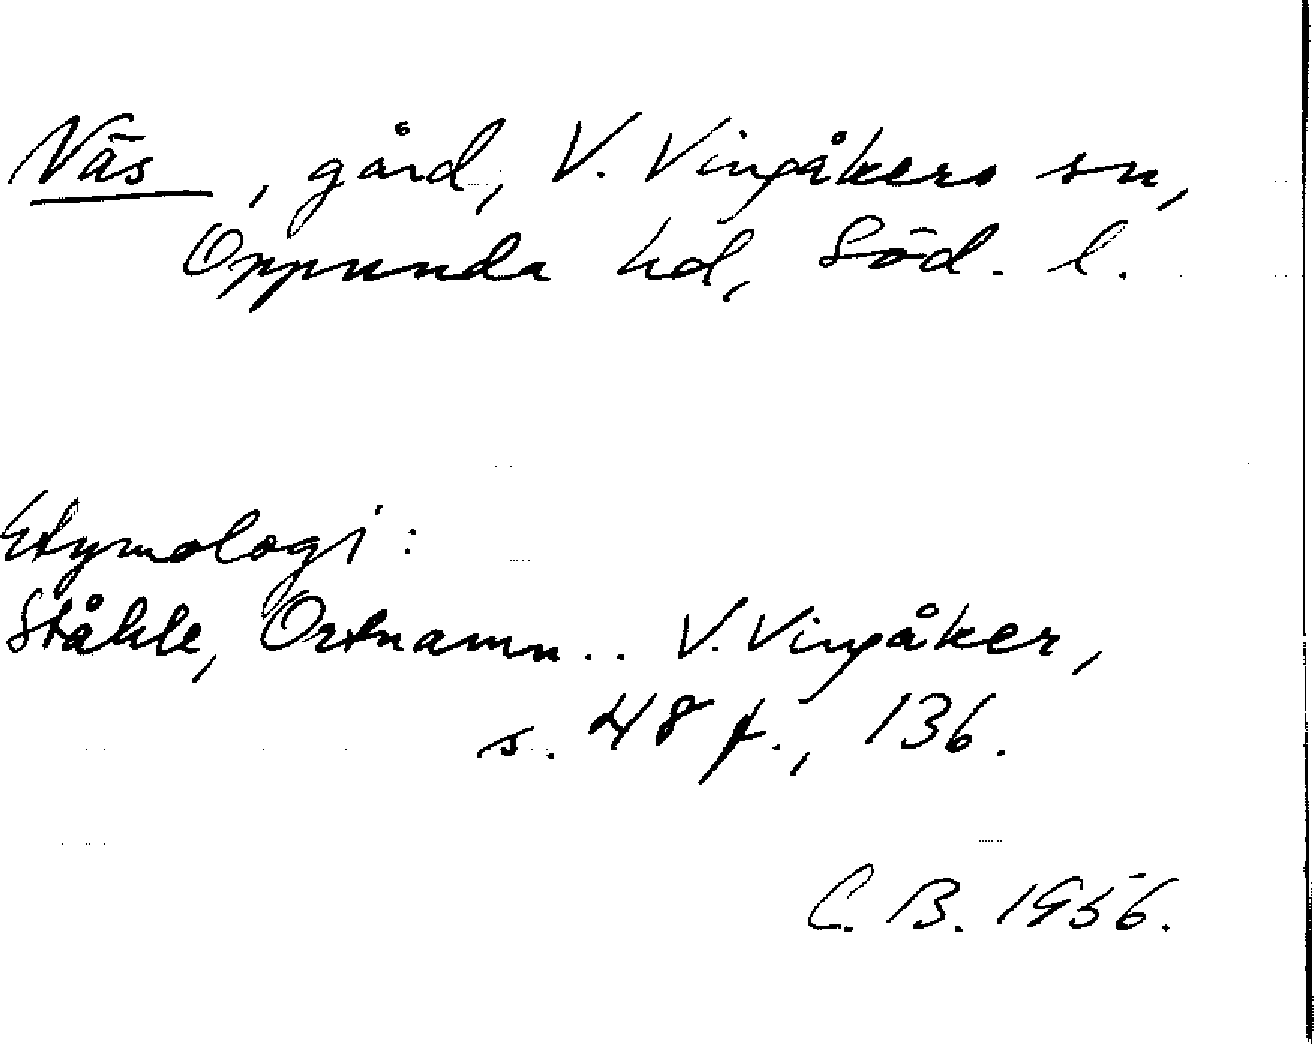 Näs, gård, V. Vingåkers sn,
Oppunda hd, Söd. l.
Etymologi:
Ståhle, Ortnamn.. V. Vingåker,
s. 48 f., 136.
C. B. 1956.